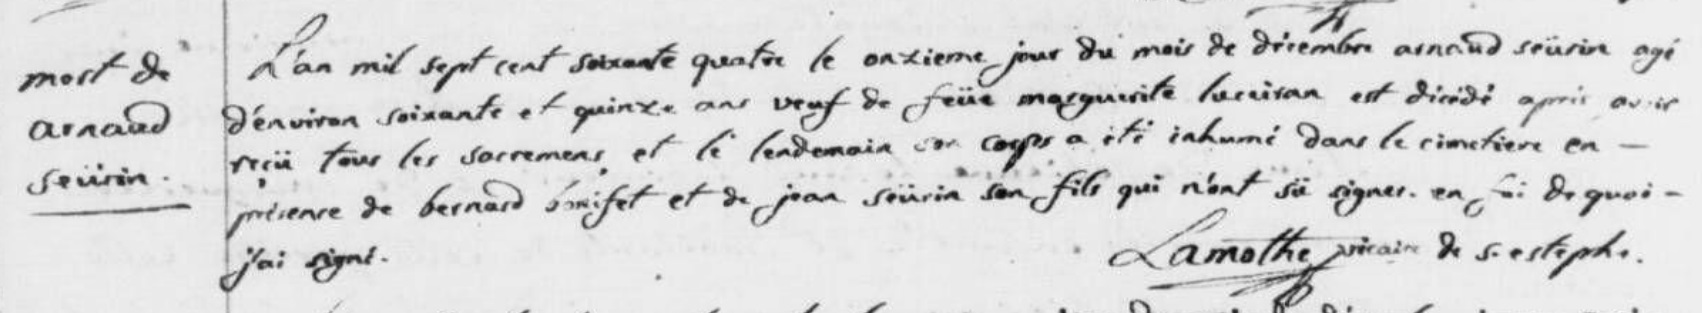 mort de
arnaud
seürin.
L'an mil sept cent soixante quatre le onzieme jour du mois de décembre arnaud seürin agé
d'environ soixante et quinze ans veuf de feüe marguerite est décédé apres avoir
reçü tous les sacremens, et le lendemain son corps a été inhumé dans le cimetiere en –
présence de bernard et de jean seürin son fils qui n'ont sü signer. en foi de quoi –
j'ai signé.
Lamothe vicaire de s. estephe.